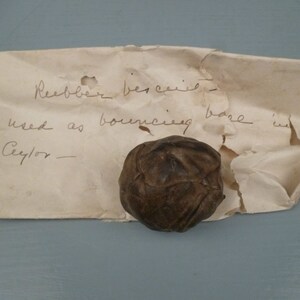 Rubber biscuit -
used as bouncing ball in
Ceylon -